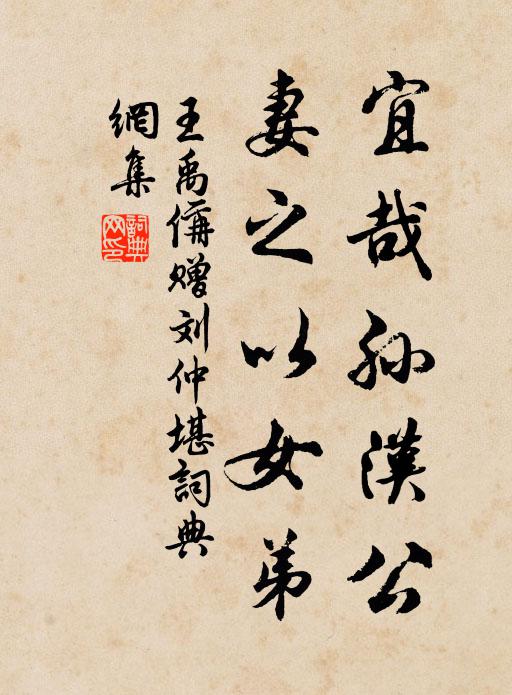 宜哉孙漢公
妻之以女弟
王禹偁赠刘仲堪詞典
網集
詞典
网印